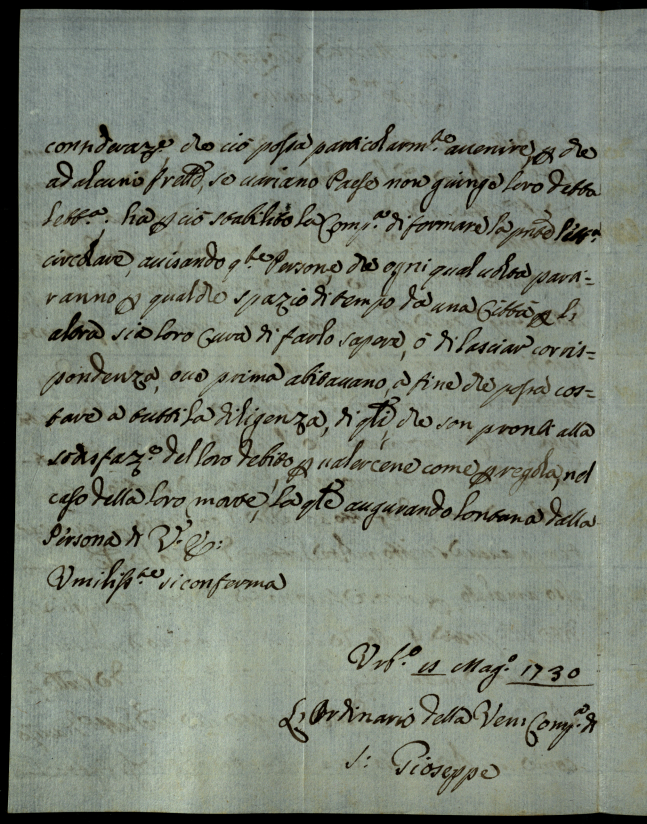 consideraz.e che ciò possa particolarm.te avvenire, p che
ad alcuni frelli, se variano Paese non giunge loro detta
lett.a; ha p ciò stabilito la Comp.a di formare la pnte lett.a
circolare, avisando q.te Persone, che ogni qual volta parti-
ranno p qualche spazio di tempo da una Città p l'
altra sia loro cura di farlo sapere, ò di lasciar corris-
pondenza, ove prima abitavano, a fine che possa cos-
tare a tutti la diligenza, di qlli che son pronti alla
sodisfaz.e del loro debito p valercene come p regola, nel
caso della loro morte, la qle augurando lontana dalla
Persona di V.S.
Vmiliss.te si conferma
Vrb.o Mag.o 1730
L'Ordinario della Ven: Comp.a di
S: Gioseppe